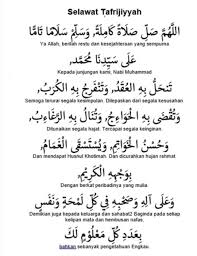 Selawat Tafrijiyyah
اللَّهُمَّ صَلِّ صَلَاةً كَامِلَةً، وَسَلِّمْ سَلَامًا تَامًّا
Ya Allah, berilah restu dan kesejahteraan yang sempurna
عَلَى سَيِّدِنَا مُحَمَّدٍ
Kepada junjungan kami, Nabi Muhammad
تَنْحَلُّ بِهِ الْعُقَدُ، وَتَنْفَرِجُ بِهِ الْكُرَبُ،
Semoga terurai segala kesimpulan. Dilepaskan dari segala kesusahan
وَتُقْضَى بِهِ الْحَوَائِجُ، وَتُنَالُ بِهِ الرَّغَائِبُ،
Ditunaikan segala hajat. Tercapai segala keinginan.
وَحُسْنُ الْخَوَاتِيمِ، وَيُسْتَسْقَى الْغَمَامُ،
Dan mendapat Husnul Khotimah. Dan dicurahkan hujan rahmat
بِوَجْهِهِ الْكَرِيْمِ،
Dengan berkat peribadinya yang mulia
وَعَلَى آلِهِ وَصَحْبِهِ فِي كُلِّ لَمْحَةٍ وَنَفَسٍ
Demikian juga kepada keluarga dan sahabat2 Baginda pada setiap
kelipan mata dan hembusan nafas,
بِعَدَدِ كُلِّ مَعْلُومٍ لَكَ
bahkan sebanyak pengetahuan Engkau